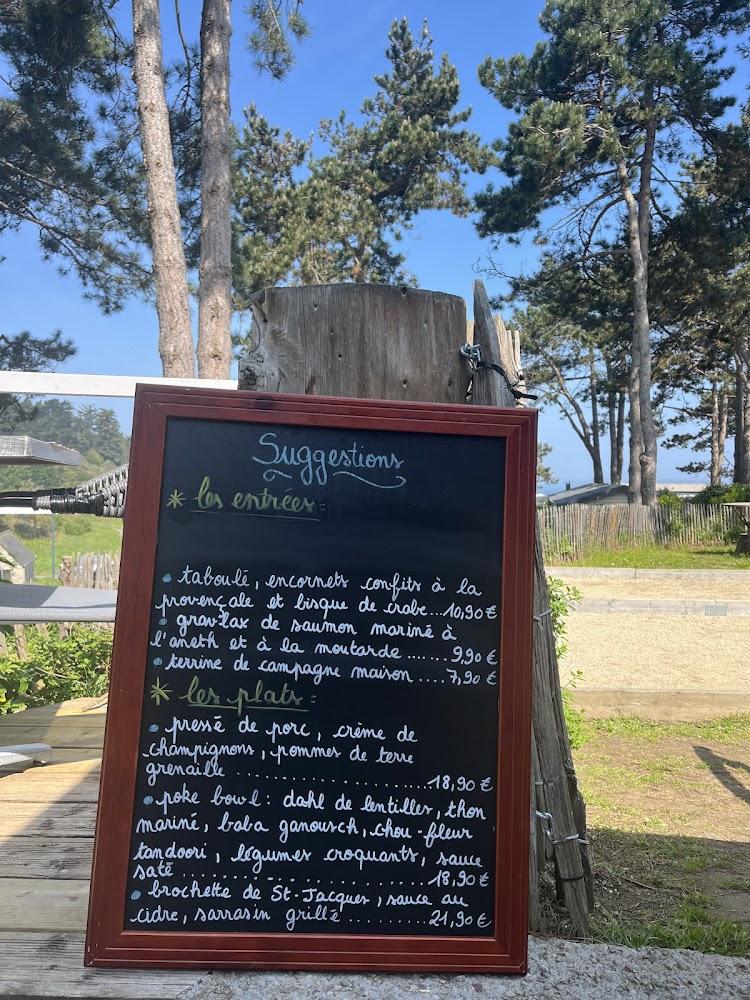 Suggestions
* les entrées:
• taboulé, encornets confits à la
provençale et bisque de crabe...10,90 €
• gravlax de saumon mariné à
l'aneth et à la moutarde.......9,90 €
• terrine de campagne maison....7,90 €
* les plats:
• pressé de porc, crème de
champignons, pommes de terre
grenaille.......................18,90 €
• poke bowl: dahl de lentilles, thon
mariné, baba ganousch, chou-fleur
tandoori, légumes croquants, sauce
saté............................18,90 €
• brochette de St-Jacques, sauce au
cidre, sarrasin grillé..........21,90 €